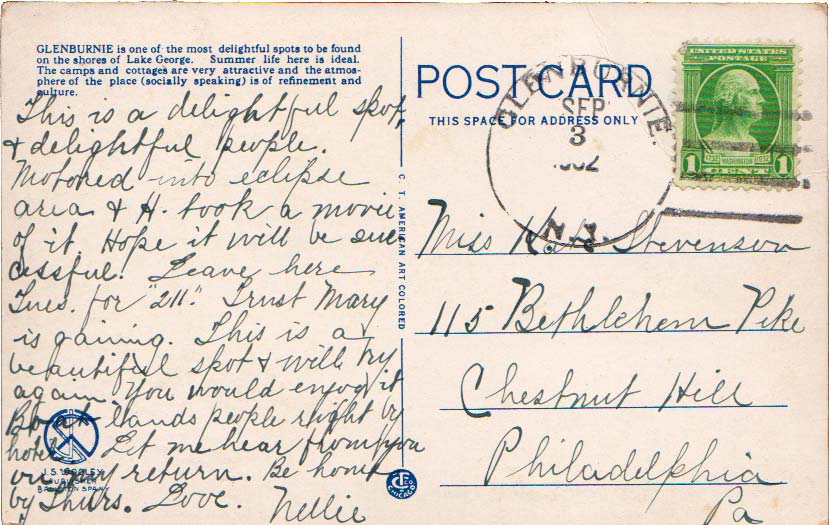 GLENBURNIE is one of the most delightful spots to be found
on the shores of Lake George. Summer life here is ideal.
The camps and cottages are very attractive and the atmos-
phere of the place (socially speaking) is of refinement and
culture.
This is a delightful spot,
& delightful people.
Motored into eclipse
area & H. took a movie
of it. Hope it will be suc
cessful. Leave here
Tues. for "211". Trust Mary
is gaining. This is a
beautiful spot & will try
again. You would enjoy it
Boat lands people right by
hotel. Let me hear from you
on my return. Be home
by Thurs. Love.
Nellie
J. S. WOOLEY
PUBLISHER
BALLSTON SPA NY
C. T. AMERICAN ART COLORED
CHICAGO
POST CARD
THIS SPACE FOR ADDRESS ONLY
GLENBURNIE
SEP
3
N.Y.
UNITED STATES
POSTAGE
1732 WASHINGTON 1932
1 CENT 1
Miss Kate Stevenson
115 Bethlehem Pike
Chestnut Hill
Philadelphia
Pa